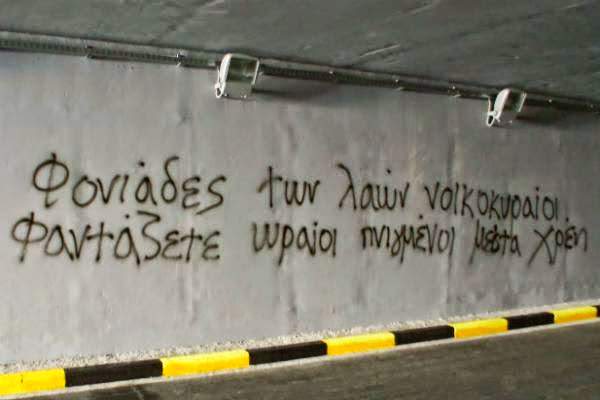 Φονιάδες των λαών νοικοκυραίοι
Φαντάζετε ωραίοι πνιγμένοι μεστα χρέη